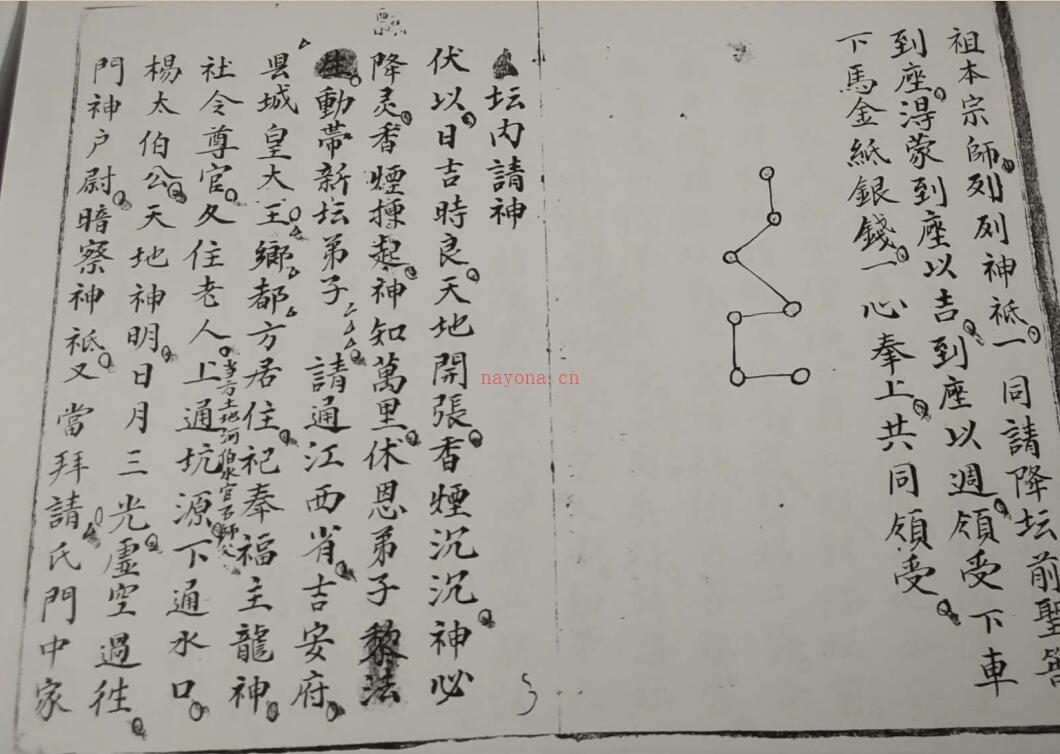 祖本宗師。列列神祗一同請降坛前聖筶
到座。得蒙到座以吉。到座以週。領受下車
下馬金紙銀錢。一心奉上。共同領受。
坛內請神
伏以。日吉時良。天地開張。香煙沉沉。神必
降灵。香煙揀起。神知萬里。伏恩弟子黎法
動帶新坛弟子 請通江西省。吉安府。
県城皇大王。鄉都方居住。祀奉福主龍神。
社令尊官。久住老人。上通坑源。下通水口。
当方土地河伯水官石師父
楊太伯公。天地神明。日月三光。虛空過往。
門神户尉。暗察神祗。又當拜請氏門中家
nayona.cn